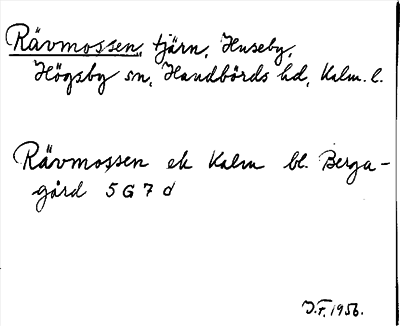 Rävmossen, tjärn, Huseby,
Högsby sn, Handbörds hd, Kalm. l.
Rävmossen ek Kalm bl. Berga-
gård 5 G 7 d
J.F. 1956.